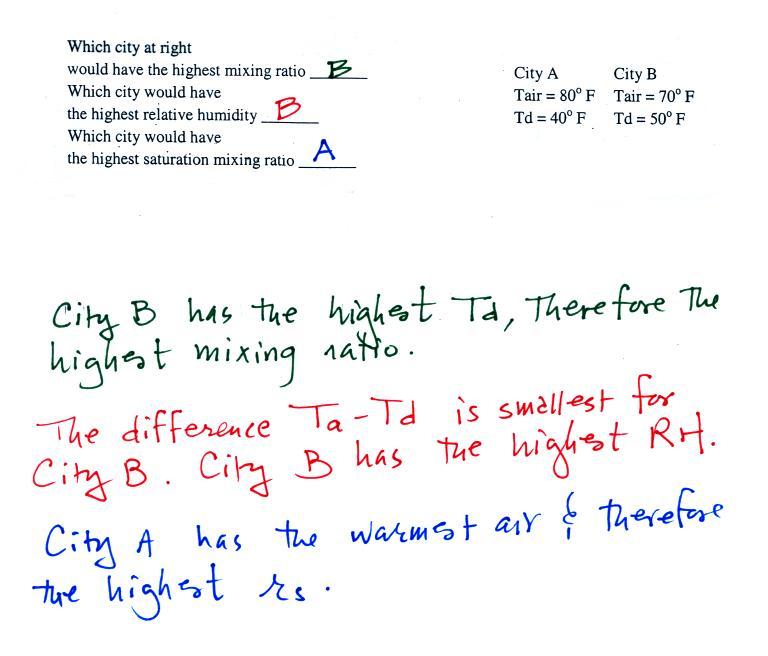 Which city at right
would have the highest mixing ratio B
Which city would have
the highest relative humidity B
Which city would have
the highest saturation mixing ratio A
City A City B
Tair = 80° F Tair = 70° F
Td = 40° F Td = 50° F
City B has the highest Td, Therefore The
highest mixing ratio.
The difference Ta-Td is smallest for
City B. City B has the highest RH.
City A has the warmest air & therefore
the highest rs.